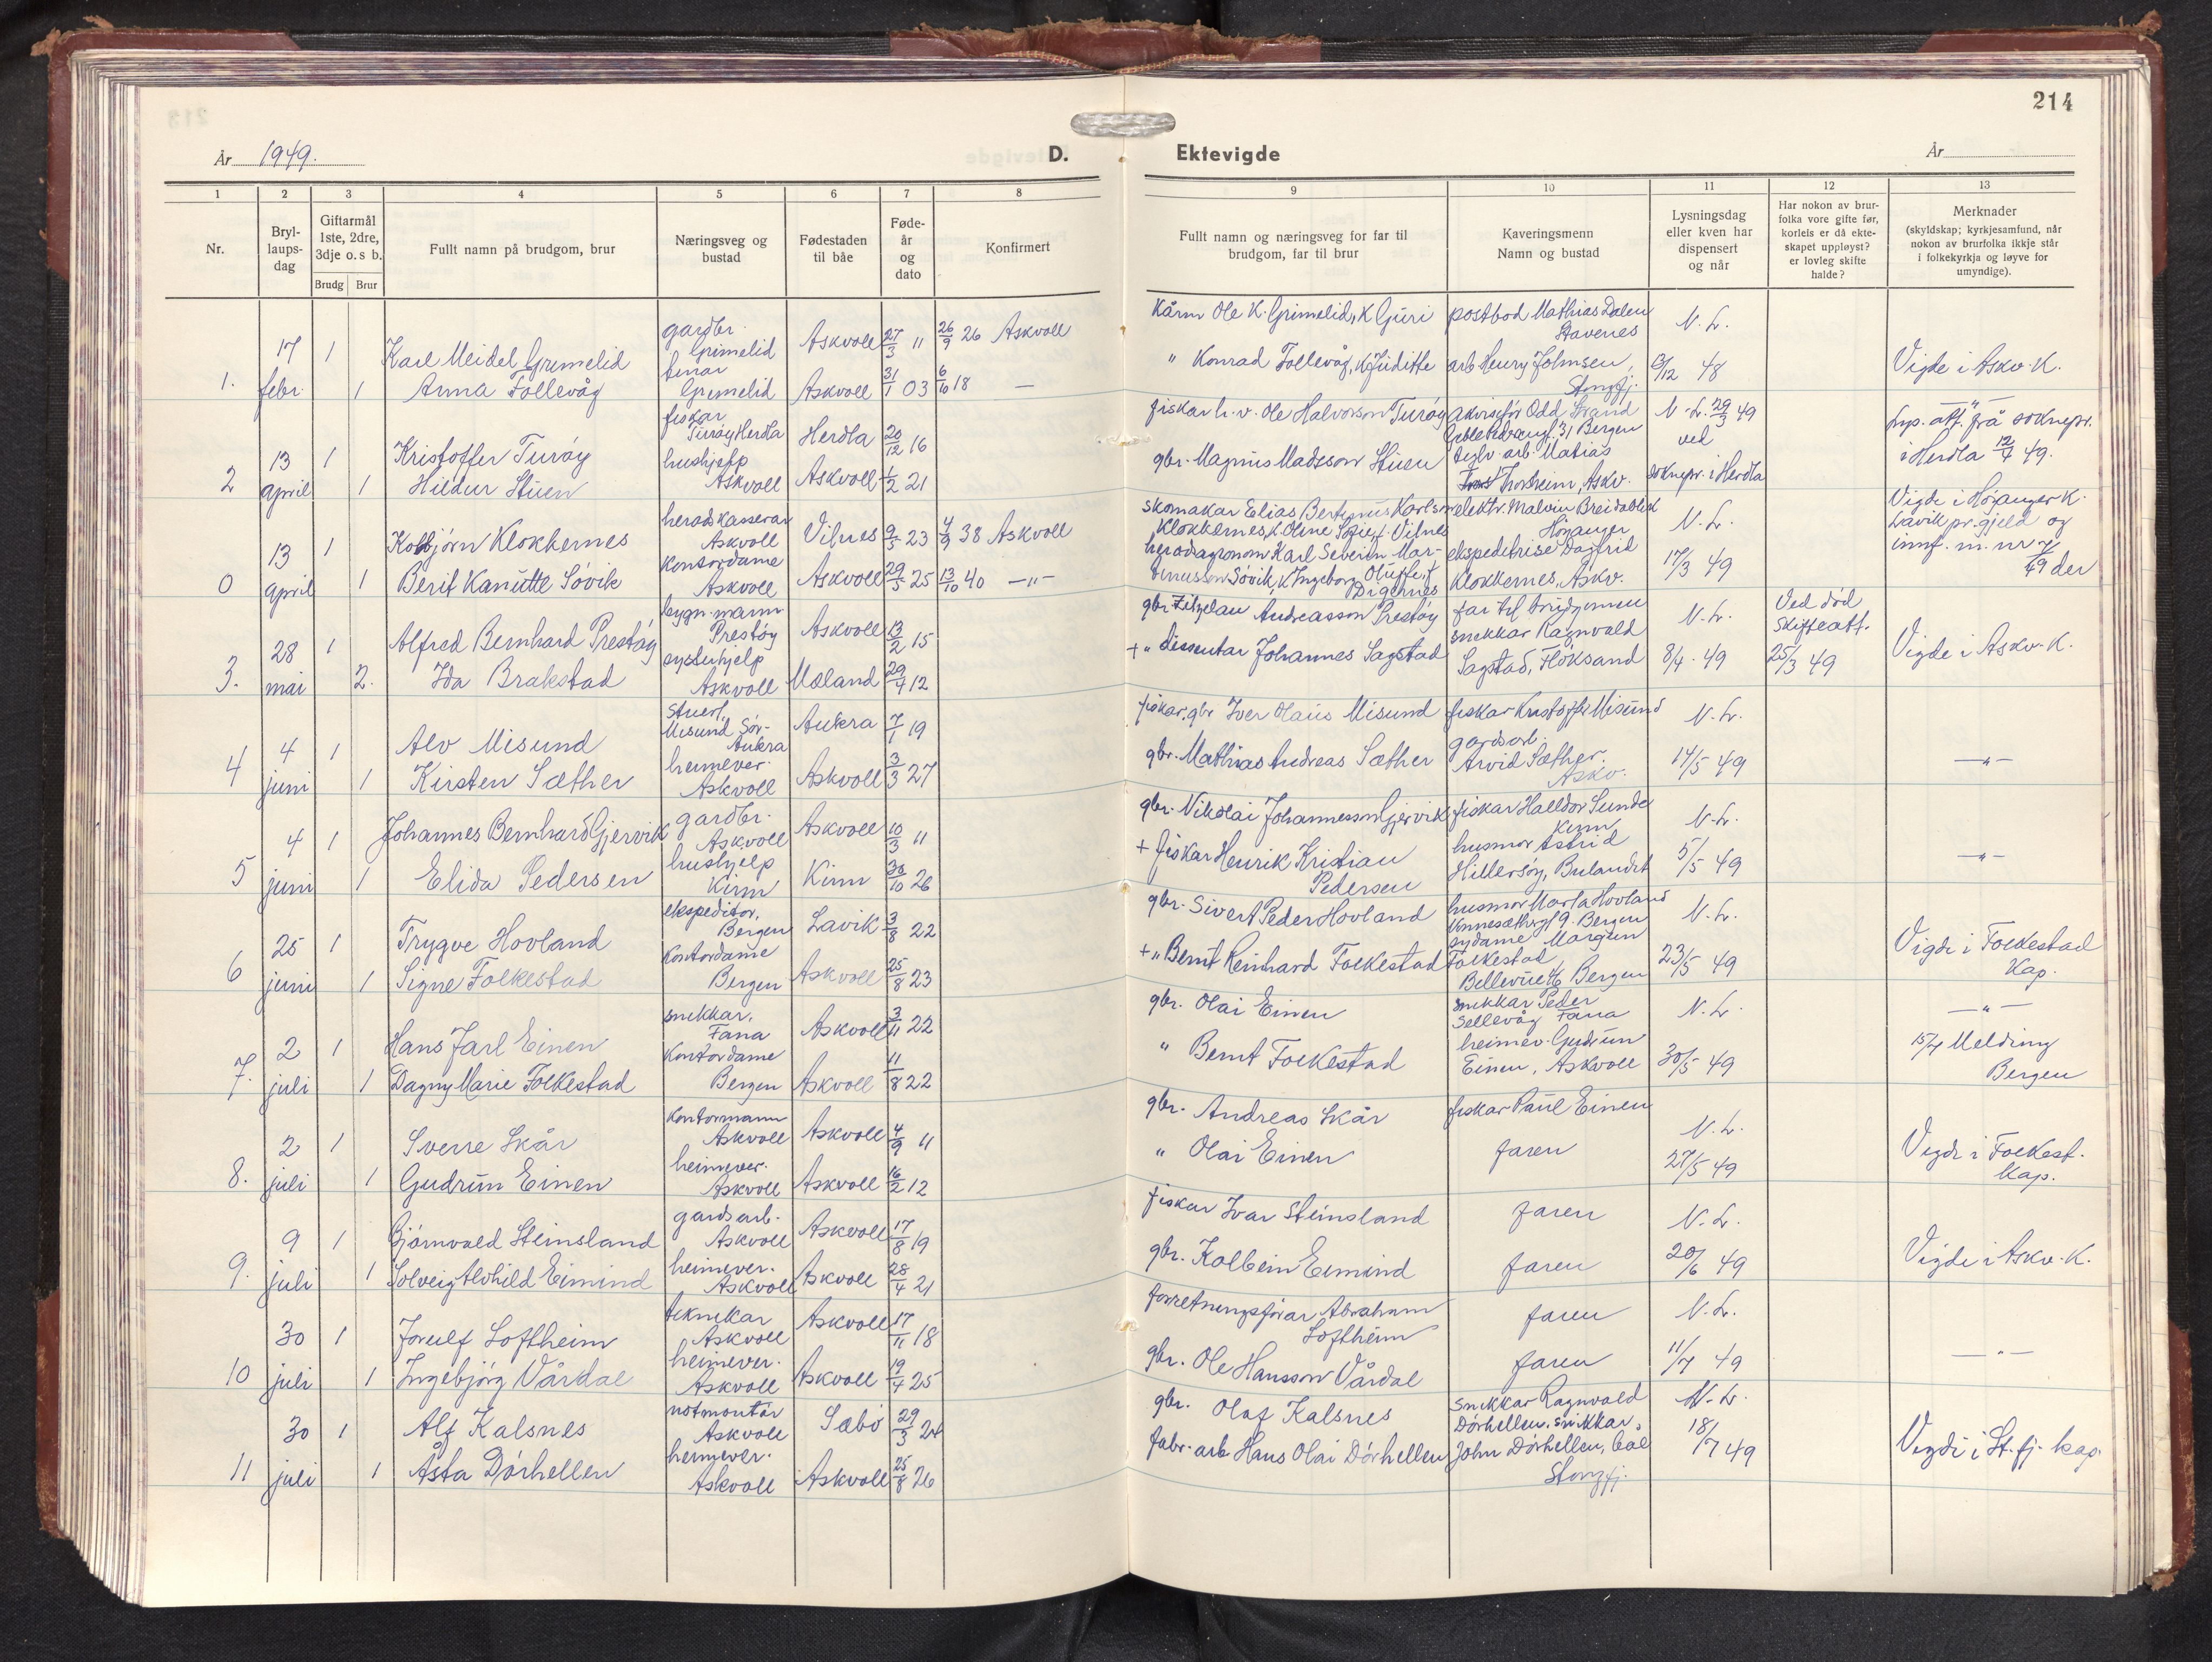 214
År 1949.
D.
Ektevigde
År
1 2 3 4 5 6 7 8 9 10 11 12 13
Nr.
Bryl-
laups-
dag
Giftarmål
1ste, 2dre,
3dje o. s b.
Brudg Brur
Fullt namn på brudgom, brur
Næringsveg og
bustad
Fødestaden
til båe
Føde-
år
og
dato
Konfirmert
Fullt namn og næringsveg for far til
brudgom, far til brur
Kaveringsmenn
Namn og bustad
Lysningsdag
eller kven har
dispensert
og når
Har nokon av brur-
folka vore gifte før,
korleis er då ekte-
skapet uppløyst?
er lovleg skifte
halde?
Merknader
(skyldskap; kyrkjesamfund, når
nokon av brurfolka ikkje står
i folkekyrkja og løyve for
umyndige).
1. 17 febr. 1 Karl Meidel Grimelid gardbr. Grimelid Askvoll 27/3 11 26/9 26 Askvoll
Ole K. Grimelid, K Guri postbod Mathias Dalen Stavenes N. L.
1 Anna Follevåg Grimelid Askvoll 31/1 03 6/10 18 —
" Konrad Follevåg, K Juditte arb Henry Johnsen, Stongfj. 13/12 48 Vigde i Askv. K.
2 13 april 1 Kristoffer Turøy fiskar Turøy Herdla Herdla 20/12 16
fiskar h. v. Ole Halvorson Turøy Odd Strand 31 Bergen N. L. 29/3 49
1 Hildur Stuen hushjelp Askvoll Askvoll 1/2 21
gbr. Magnus Madsson Stuen arb. Matias Trondheim, Askv. ved soknepr. i Herdla
Lys. att. frå soknepr. i Herdla 12/4 49.
0 13 april 1 Kolbjørn Klokkernes heradskasserar Askvoll Vilnes 9/5 23 4/9 38 Askvoll
skomakar Elias Bertinus Karlson Klokkernes, K Oline Sofie, f. Vilnes elektr. Malvin Breidablik Høyanger N. L.
1 Berit Kanutte Søvik kontordame Askvoll Askvoll 29/5 25 13/10 40 —"—
heradagronom Karl Severin Mar- tinusson Søvik, K Ingeborg Oluffe, f. Digernes ekspeditrise Dagfrid Klokkernes, Askv. 17/3 49
Vigde i Høyanger K.
Lavik pr.gjeld og
innf. m. nr 7/49 der
3. 28 mai 1 Alfred Bernhard Prestøy bygn. mann Prestøy Askvoll 13/2 15
gbr. Andreasson Prestøy far til brudgomen N. L. Ved død Skifteatt. 25/3 49
2. Ida Brakstad systerhjelp Askvoll Mæland 29/4 12
+ " dissentar Johannes Sagstad snikkar Ragnvald Sagstad, Fløksand 8/4. 49 Vigde i Askv. K.
4 4 juni 1 Alv Misund stuert, Misund Sør- Aukra Aukra 7/1 19
fiskar, gbr Iver Olaus Misund fiskar Kristoffer Misund N. L.
1 Kirsten Sæther heimever. Askvoll Askvoll 3/3 27
gbr. Mathias Andreas Sæther gardsarb. Arvid Sæther. Askv. 14/5 49 —"—
5 4 juni 1 Johannes Bernhard Gjervik gardbr. Askvoll Askvoll 10/3 11
gbr. Nikolai Johannesson Gjervik fiskar Halldor Sunde Kinn N. L.
1 Elida Pedersen hushjelp Kinn Kinn 30/10 26
+ fiskar Henrik Kristian Pedersen husmor Astrid Hillersøy, Bulandet 5/5 49 —"—
6 25 juni 1 Trygve Hovland ekspeditor, Bergen Lavik 3/8 22
gbr. Sivert Peder Hovland husmor Marta Hovland 9. Bergen N. L.
1 Signe Folkestad kontordame Bergen Askvoll 25/8 23
+ " Bernt Reinhard Folkestad sydame Margun Folkestad, Bergen 23/5 49 Vigde i Folkestad Kap.
7. 2 juli 1 Hans Jarl Einen snikkar. Fana Askvoll 3/11 22
gbr. Olai Einen snikkar Peder Sellevåg Fana N. L. —"—
1 Dagny Marie Folkestad kontordame Bergen Askvoll 11/8 22
" Bernt Folkestad heimev. Gudrun Einen, Askvoll 30/5 49 15/7 Melding Bergen
8. 2 juli 1 Sverre Skår kontormann Askvoll Askvoll 4/9 11
gbr. Andreas Skår fiskar Paul Einen N. L.
1 Gudrun Einen heimever. Askvoll Askvoll 16/2 12
" Olai Einen faren 27/5 49 Vigde i Folkest. Kap.
9. 9 juli 1 Bjørnvald Steinsland gardsarb. Askvoll Askvoll 17/8 19
fiskar Ivar Steinsland faren N. L.
1 Solveig Alvhild Eimind heimever. Askvoll Askvoll 28/4 21
gbr. Kolbein Eimind faren 20/6 49 Vigde i Askv. K.
10 30 juli 1 Jorulf Loftheim teknikar Askvoll Askvoll 17/11 18
forretningsførar Abraham Loftheim faren N. L.
1 Ingebjørg Vårdal heimever. Askvoll Askvoll 19/4 25
gbr. Ole Hansson Vårdal faren 11/7 49 —"—
11 30 juli 1 Alf Kalsnes notmontør Askvoll Sæbø 29/3 24
gbr. Olaf Kalsnes snikkar Ragnvald Dørhellen, snikkar N. L.
1 Åsta Dørhellen heimever. Askvoll Askvoll 25/8 26
fabr. arb Hans Olai Dørhellen John Dørhellen, Stongfj. 18/7 49 Vigde i St. fj. kap.